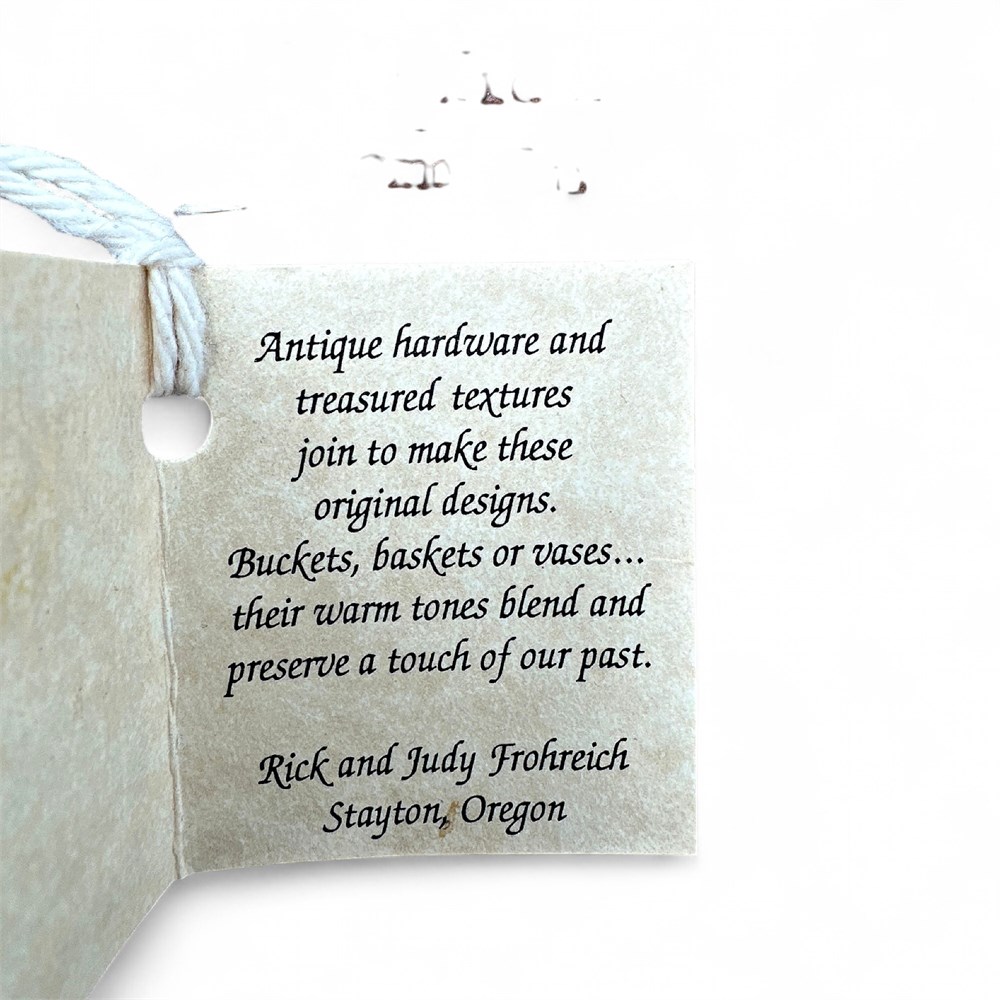 Antique hardware and
treasured textures
join to make these
original designs.
Buckets, baskets or vases...
their warm tones blend and
preserve a touch of our past.
Rick and Judy Frohreich
Stayton, Oregon